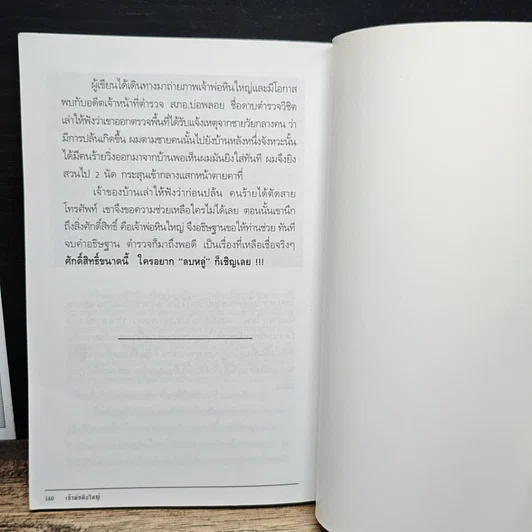 ผู้เขียนได้เดินทางมาถ่ายภาพเจ้าพ่อหินใหญ่และมีโอกาส
พบกับอดีตเจ้าหน้าที่ตำรวจ สภอ.บ่อพลอย ชื่อดาบตำรวจวิชิต
เล่าให้ฟังว่าเขาออกตรวจพื้นที่ได้รับแจ้งเหตุจากชายวัยกลางคน ว่า
มีการปล้นเกิดขึ้น ผมตามชายคนนั้นไปยังบ้านหลังหนึ่งจังหวะนั้น
ได้มีคนร้ายวิ่งออกมาจากบ้านพอเห็นผมมันยิงใส่ทันที ผมจึงยิง
สวนไป 2 นัด กระสุนเข้ากลางแสกหน้าตายคาที่
เจ้าของบ้านเล่าให้ฟังว่าก่อนปล้น คนร้ายได้ตัดสาย
โทรศัพท์ เขาจึงขอความช่วยเหลือใครไม่ได้เลย ตอนนั้นเขานึก
ถึงสิ่งศักดิ์สิทธิ์ คือเจ้าพ่อหินใหญ่ จึงอธิษฐานขอให้ท่านช่วย ทันที
จบคำอธิษฐาน ตำรวจก็มาถึงพอดี เป็นเรื่องที่เหลือเชื่อจริงๆ
ศักดิ์สิทธิ์ขนาดนี้ ใครอยาก "ลบหลู่" ก็เชิญเลย !!!
160 เจ้าพ่อหินใหญ่